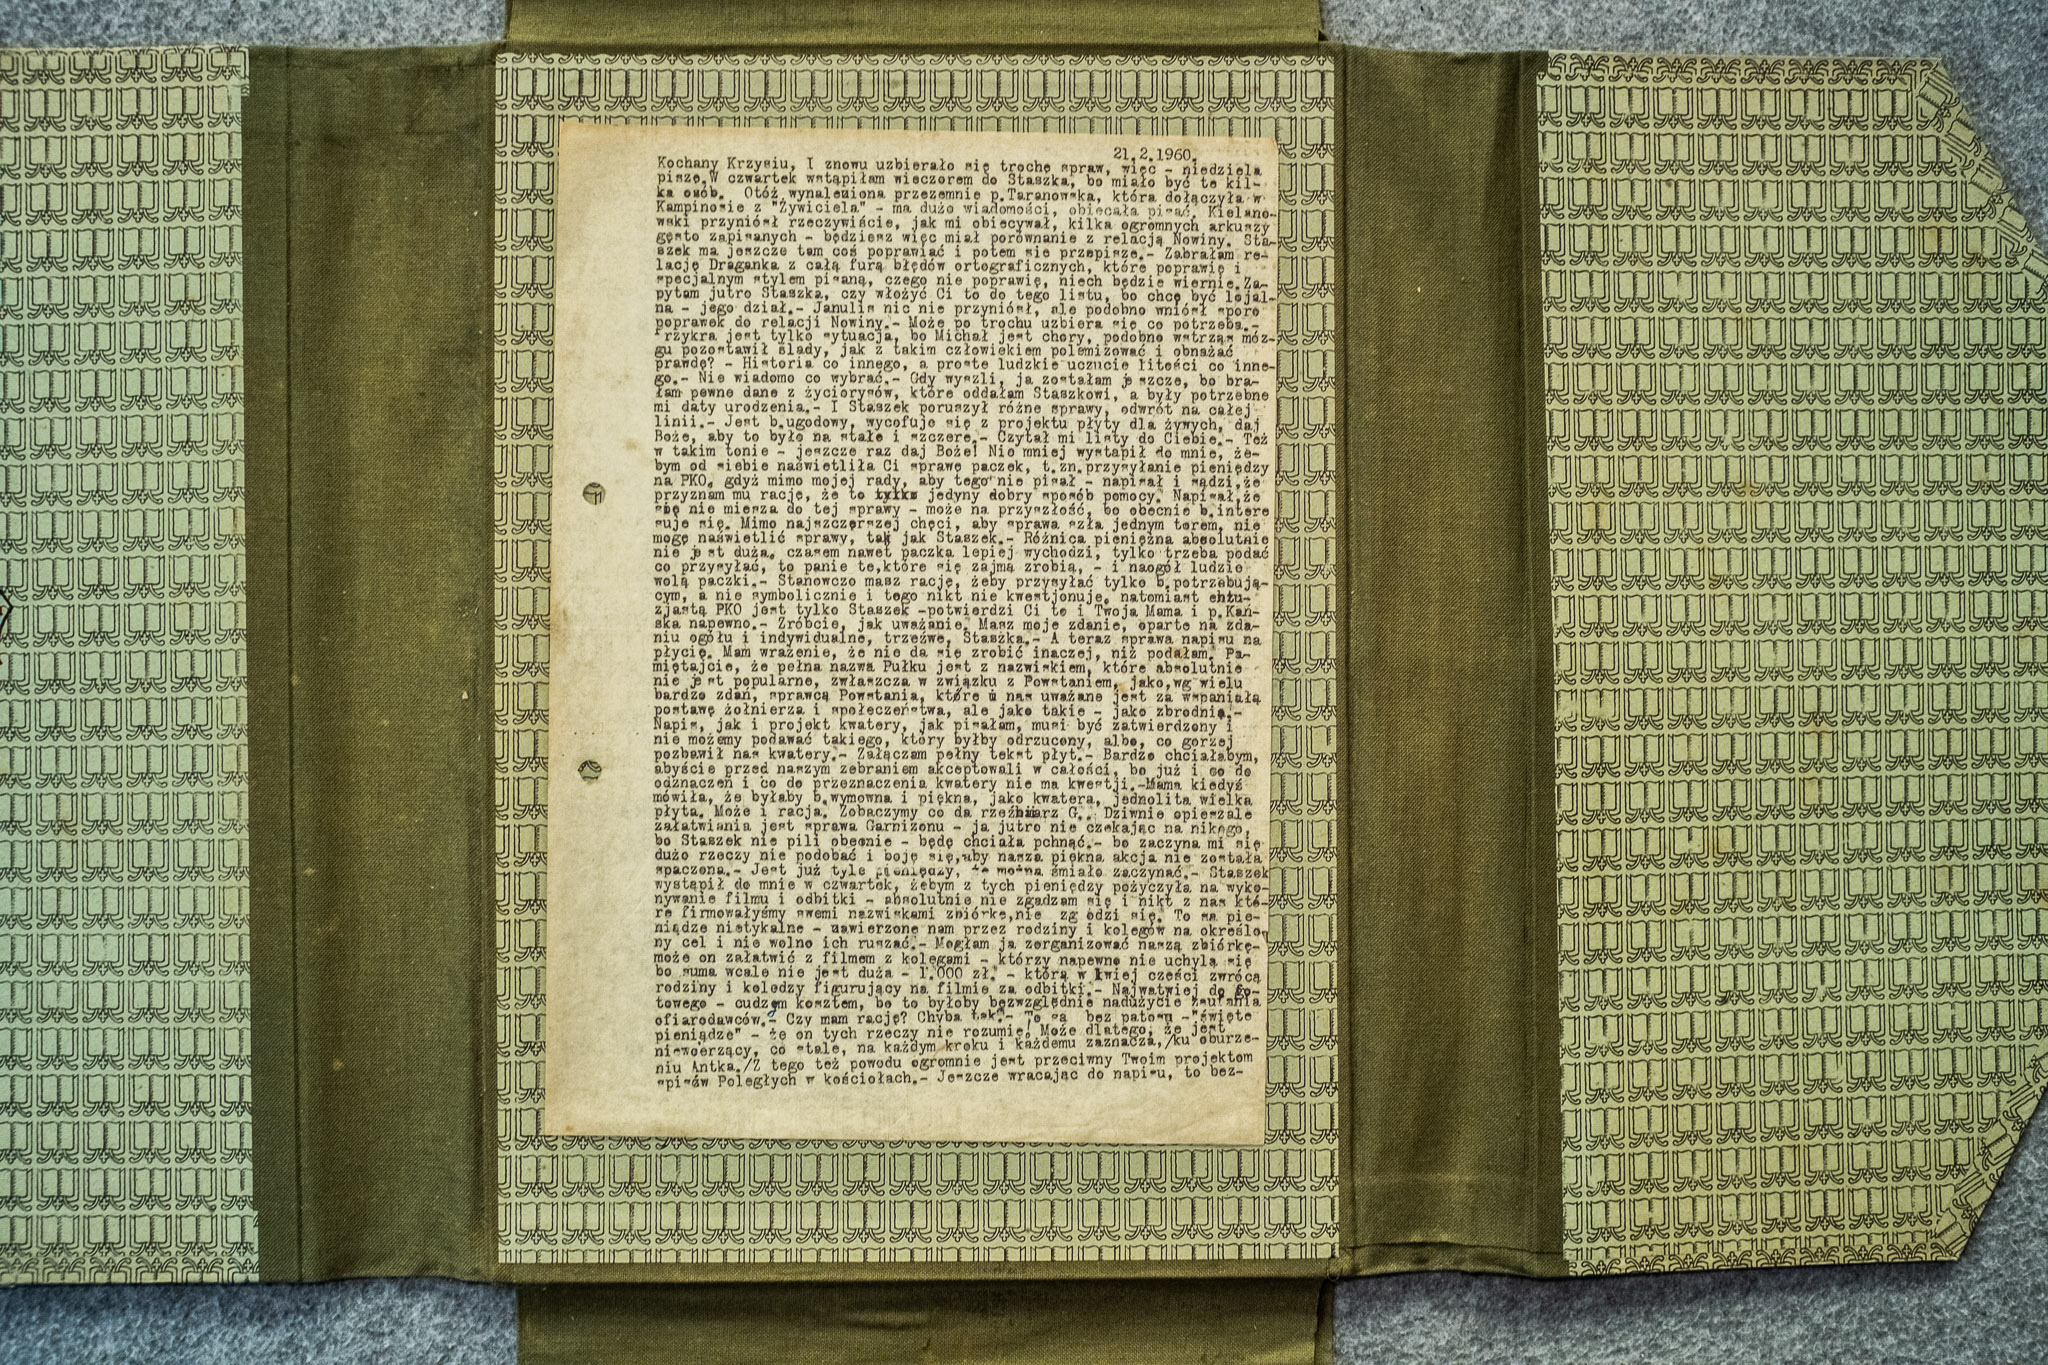 21.2.1960.
Kochany Krzysiu, I znowu uzbierało się trochę spraw, więc - niedziela
piszę.W czwartek wstąpiłam wieczorem do Staszka, bo miało być te kil-
ka osób.  Otóż wynaleziona przezemnie p.Taranowska, która dołączyła w
Kampinosie z "Żywiciela" - ma dużo wiadomości, obiecała pisać. Kielano-
wski przyniósł rzeczywiście, jak mi obiecywał, kilka ogromnych arkuszy
gęsto zapisanych - będziesz więc miał porównanie z relacją Nowiny. Sta-
szek ma jeszcze tam coś poprawiać i potem się przepisze.- Zabrałam re-
lację Draganka z całą furą błędów ortograficznych, które poprawię i
specjalnym stylem pisaną, czego nie poprawię, niech będzie wiernie.Za-
pytam jutro Staszka, czy włożyć Ci to do tego listu, bo chcę być lojal-
na - jego dział.- Janulis nic nie przyniósł, ale podobno wniósł sporo
poprawek do relacji Nowiny.- Może po trochu uzbiera się co potrzeba.-
rzykra jest tylko sytuacja, bo Michał jest chory, podobno wstrząs móz-
gu pozostawił ślady, jak z takim człowiekiem polemizować i obnażać
prawdę? - Historia co innego, a proste ludzkie uczucie litości co inne-
go.- Nie wiadomo co wybrać.- Gdy wyszli, ja zostałam jeszcze, bo bra-
łam pewne dane z życiorysów, które oddałam Staszkowi, a były potrzebne
mi daty urodzenia.- I Staszek poruszył różne sprawy, odwrót na całej
linii.- Jest b.ugodowy, wycofuje się z projektu płyty dla żywych, daj
Boże, aby to było na stałe i szczere.- Czytał mi listy do Ciebie.- Też
w takim tonie - jeszcze raz daj Boże! Nio mniej wystąpił do mnie, że-
bym od siebie naświetliła Ci sprawę paczek, t.zn.przysyłanie pieniędzy
na PKO, gdyż mimo mojej rady, aby tego nie pisał - napisał i sądzi,że
przyznam mu rację, że to tylko jedyny dobry sposób pomocy. Napisał,że
się nie miesza do tej sprawy - może na przyszłość, bo obecnie b.intere
suje się. Mimo najszczerszej chęci, aby sprawa szła jednym torem, nie
mogę naświetlić sprawy, tak jak Staszek.- Różnica pieniężna absolutnie
nie jest duża, czasem nawet paczka lepiej wychodzi, tylko trzeba podać
co przysyłać, to panie te,które się zajmą zrobią, - i naogół ludzie
wolą paczki.- Stanowczo masz rację, żeby przysyłać tylko b.potrzebują-
cym, a nie symbolicznie i tego nikt nie kwestjonuje, natomiast entu-
zjastą PKO jest tylko Staszek -potwierdzi Ci to i Twoja Mama i p.Kań-
ska napewno.- Zróbcie, jak uważanie. Masz moje zdanie, oparte na zda-
niu ogółu i indywidualne, trzeźwe, Staszka.- A teraz sprawa napisu na
płycie. Mam wrażenie, że nie da się zrobić inaczej, niż podałam. Pa-
miętajcie, że pełna nazwa Pułku jest z nazwiskiem, które absolutnie
nie jest popularne, zwłaszcza w związku z Powstaniem, jako,wg wielu
bardzo zdań, sprawca Powstania, które u nas uważane jest za wspaniałą
postawę żołnierza i społeczeństwa, ale jako takie - jako zbrodnia.-
Napis, jak i projekt kwatery, jak pisałam, musi być zatwierdzony i
nie możemy podawać takiego, który byłby odrzucony, albo, co gorzej
pozbawił nas kwatery.- Załączam pełny tekst płyt.- Bardzo chciałabym,
abyście przed naszym zebraniem akceptowali w całości, bo już i co do
odznaczeń i co do przeznaczenia kwatery nie ma kwestji.-Mama kiedyś
mówiła, że byłaby b.wymowna i piękna, jako kwatera, jednolita wielka
płyta. Może i racja. Zobaczymy co da rzeźbiarz G.. Dziwnie opieszałe
załatwiania jest sprawa Garnizonu - ja jutro nie czekając na nikogo,
bo Staszek nie pili obecnie - będę chciała pchnąć.- bo zaczyna mi się
dużo rzeczy nie podobać i boję się,aby nasza piękna akcja nie została
spaczona.- Jest już tyle pieniędzy, że można śmiało zaczynać.- Staszek
wystąpił do mnie w czwartek, żebym z tych pieniędzy pożyczyła na wyko-
nywanie filmu i odbitki - absolutnie nie zgadzam się i nikt z nas któ-
re firmowałyśmy swemi nazwiskami zbiórkę,nie  zg odzi się. To są pie-
niądze nietykalne - zawierzone nam przez rodziny i kolegów na określo-
ny cel i nie wolno ich ruszać.- Mogłam ja zorganizować naszą zbiórkę-
może on załatwić z filmem z kolegami - którzy napewno nie uchylą się
bo suma wcale nie jest duża - 1.000 zł. - którą w lwiej części zwrócą
rodziny i koledzy figurujący na filmie za odbitki.- Najłatwiej do go-
towego - cudzym kosztem, bo to byłoby bezwzględnie nadużycie zaufania
ofiarodawców.- Czy mam rację? Chyba tak.- To są  bez patosu -"święte
pieniądze" - że on tych rzeczy nie rozumie! Może dlatego, że jest
niewierzący, co stale, na każdym kroku i każdemu zaznacza,/ku oburze-
niu Antka./Z tego też powodu ogromnie jest przeciwny Twoim projektom
spisów Poległych w kościołach.- Jeszcze wracając do napisu, to bez-